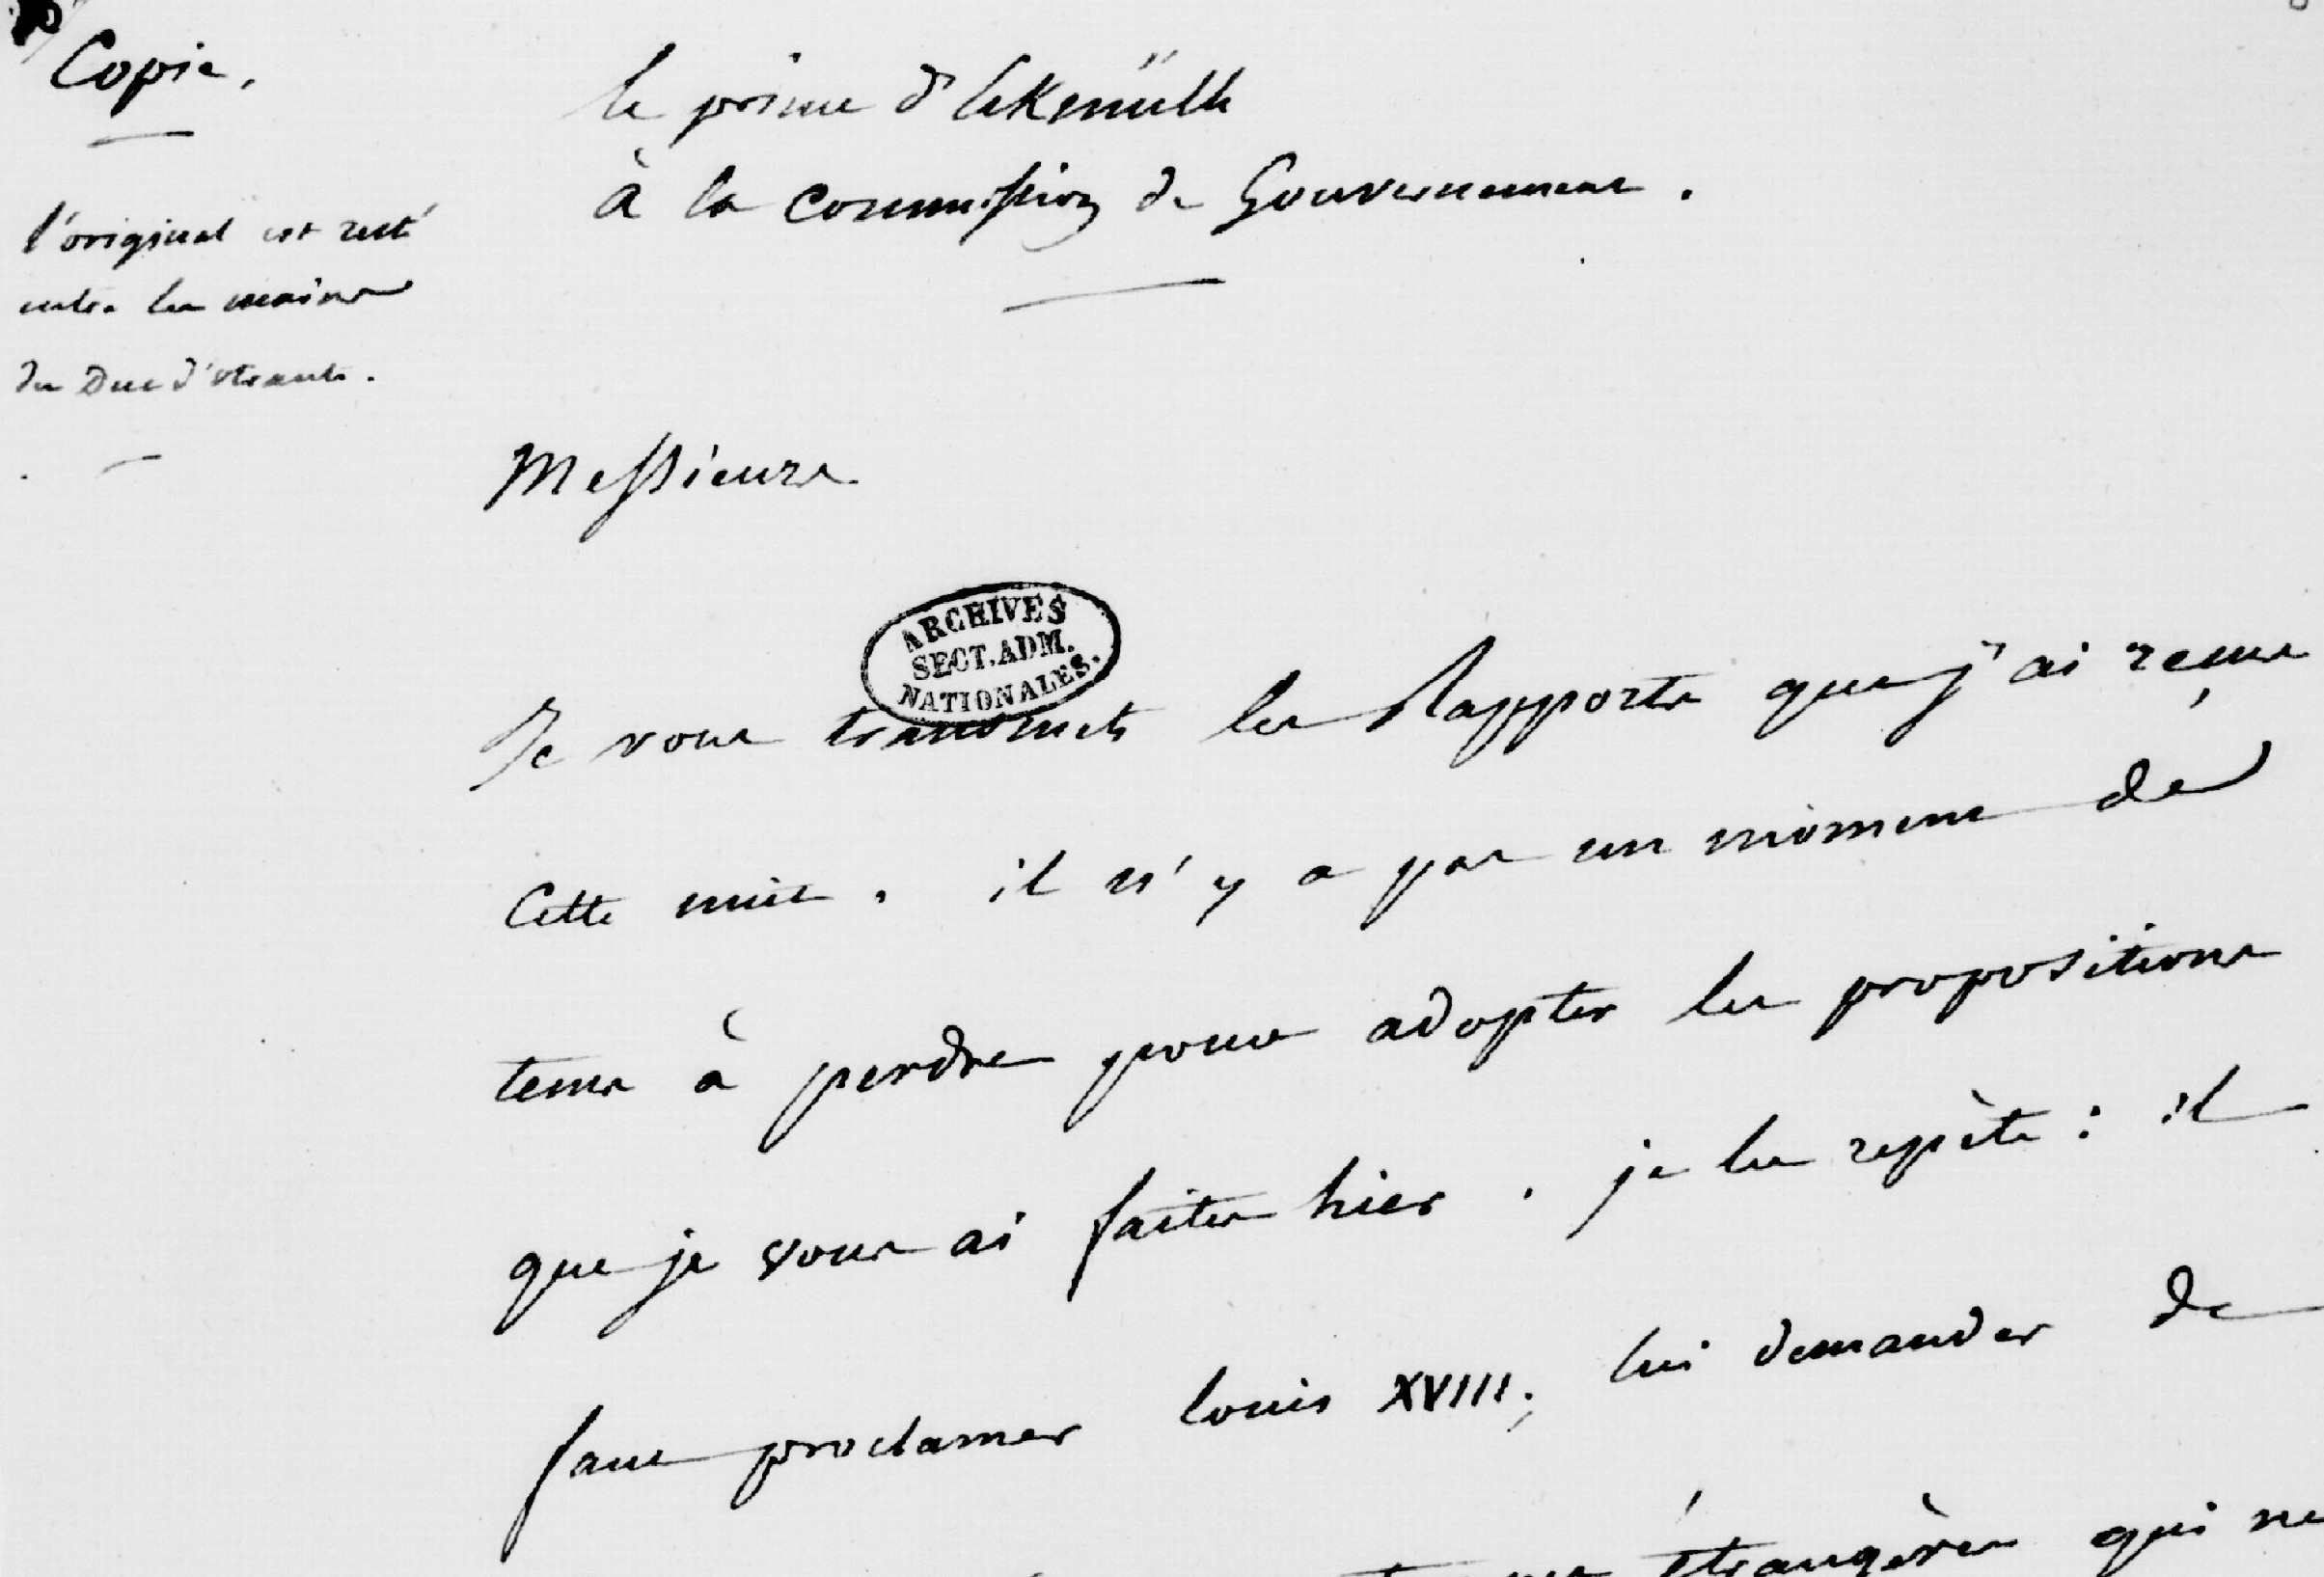 Copie.
l'original est resté
entre les mains
du Duc d'Otrante.
le prince d'Ekmülh
à la Commission de Gouvernement.
Messieurs
ARCHIVES
SECT. ADM.
NATIONALES.
Je vous transmets les Rapports que j'ai reçus
Cette nuit. il n'y a pas un moment de
tems à perdre pour adopter les propositions
que je vous ai faites hier. je le repète : il
faut proclamer louis XVIII; lui demander de
étrangères qui ne